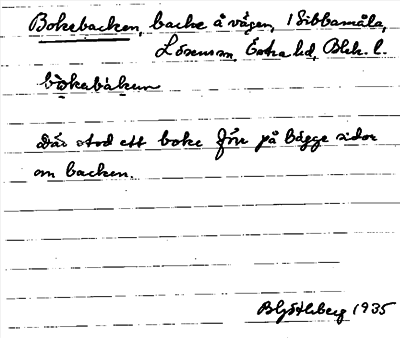 Bokebacken, backe å vägen, 1 Sibbamåla,
Lösens sn, Östra hd, Blek. l.
bo̳kebákenn
Där stod ett boke förr på bägge sidor
om backen.
1935